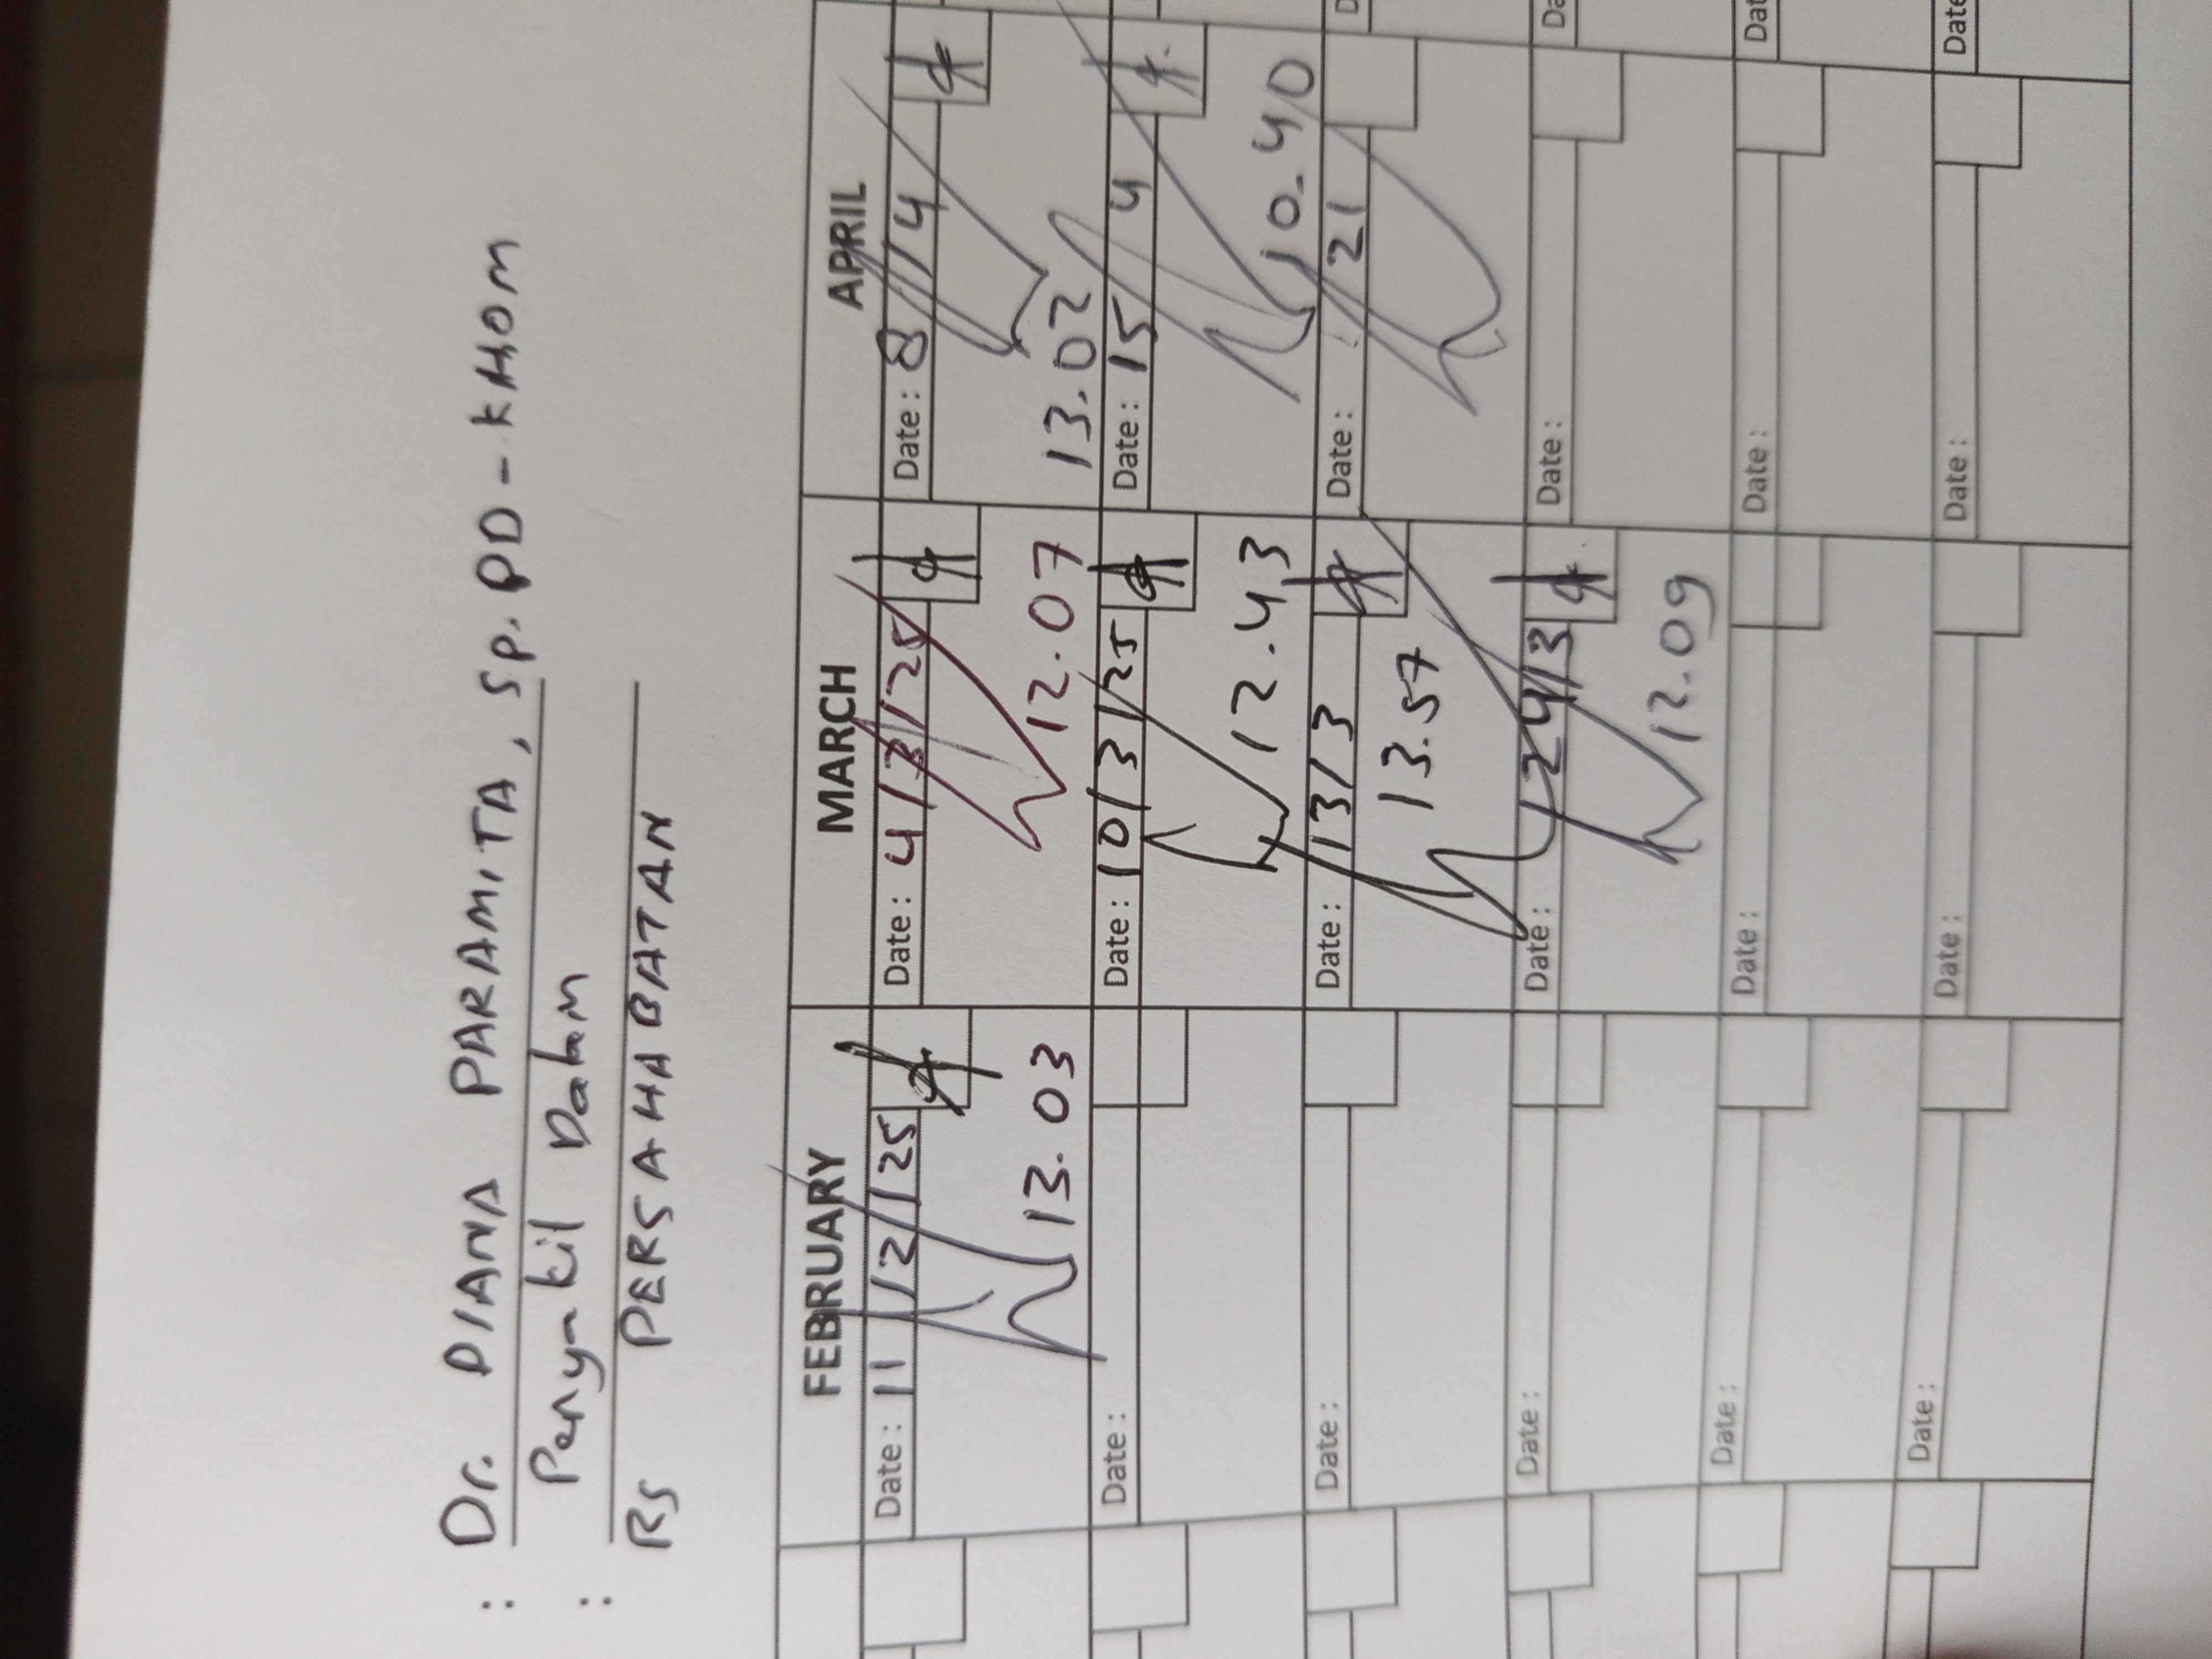 : Dr. DIANA PARAMITA, Sp.PD-KHOM
: Penyakit Dalam
RS PERSAHABATAN
FEBRUARY MARCH APRIL
Date: 11/2/25 Date: 4/3/25 Date: 8/4
13.03 12.07 13.02
Date: Date: 10/3/25 Date: 15 4
12.43 10.40
Date: Date: 13/3 Date: 21
13.57
Date: Date: 24/3 Date: Da
12.09
Date: Date: Date: Dat
Date: Date: Date: Date